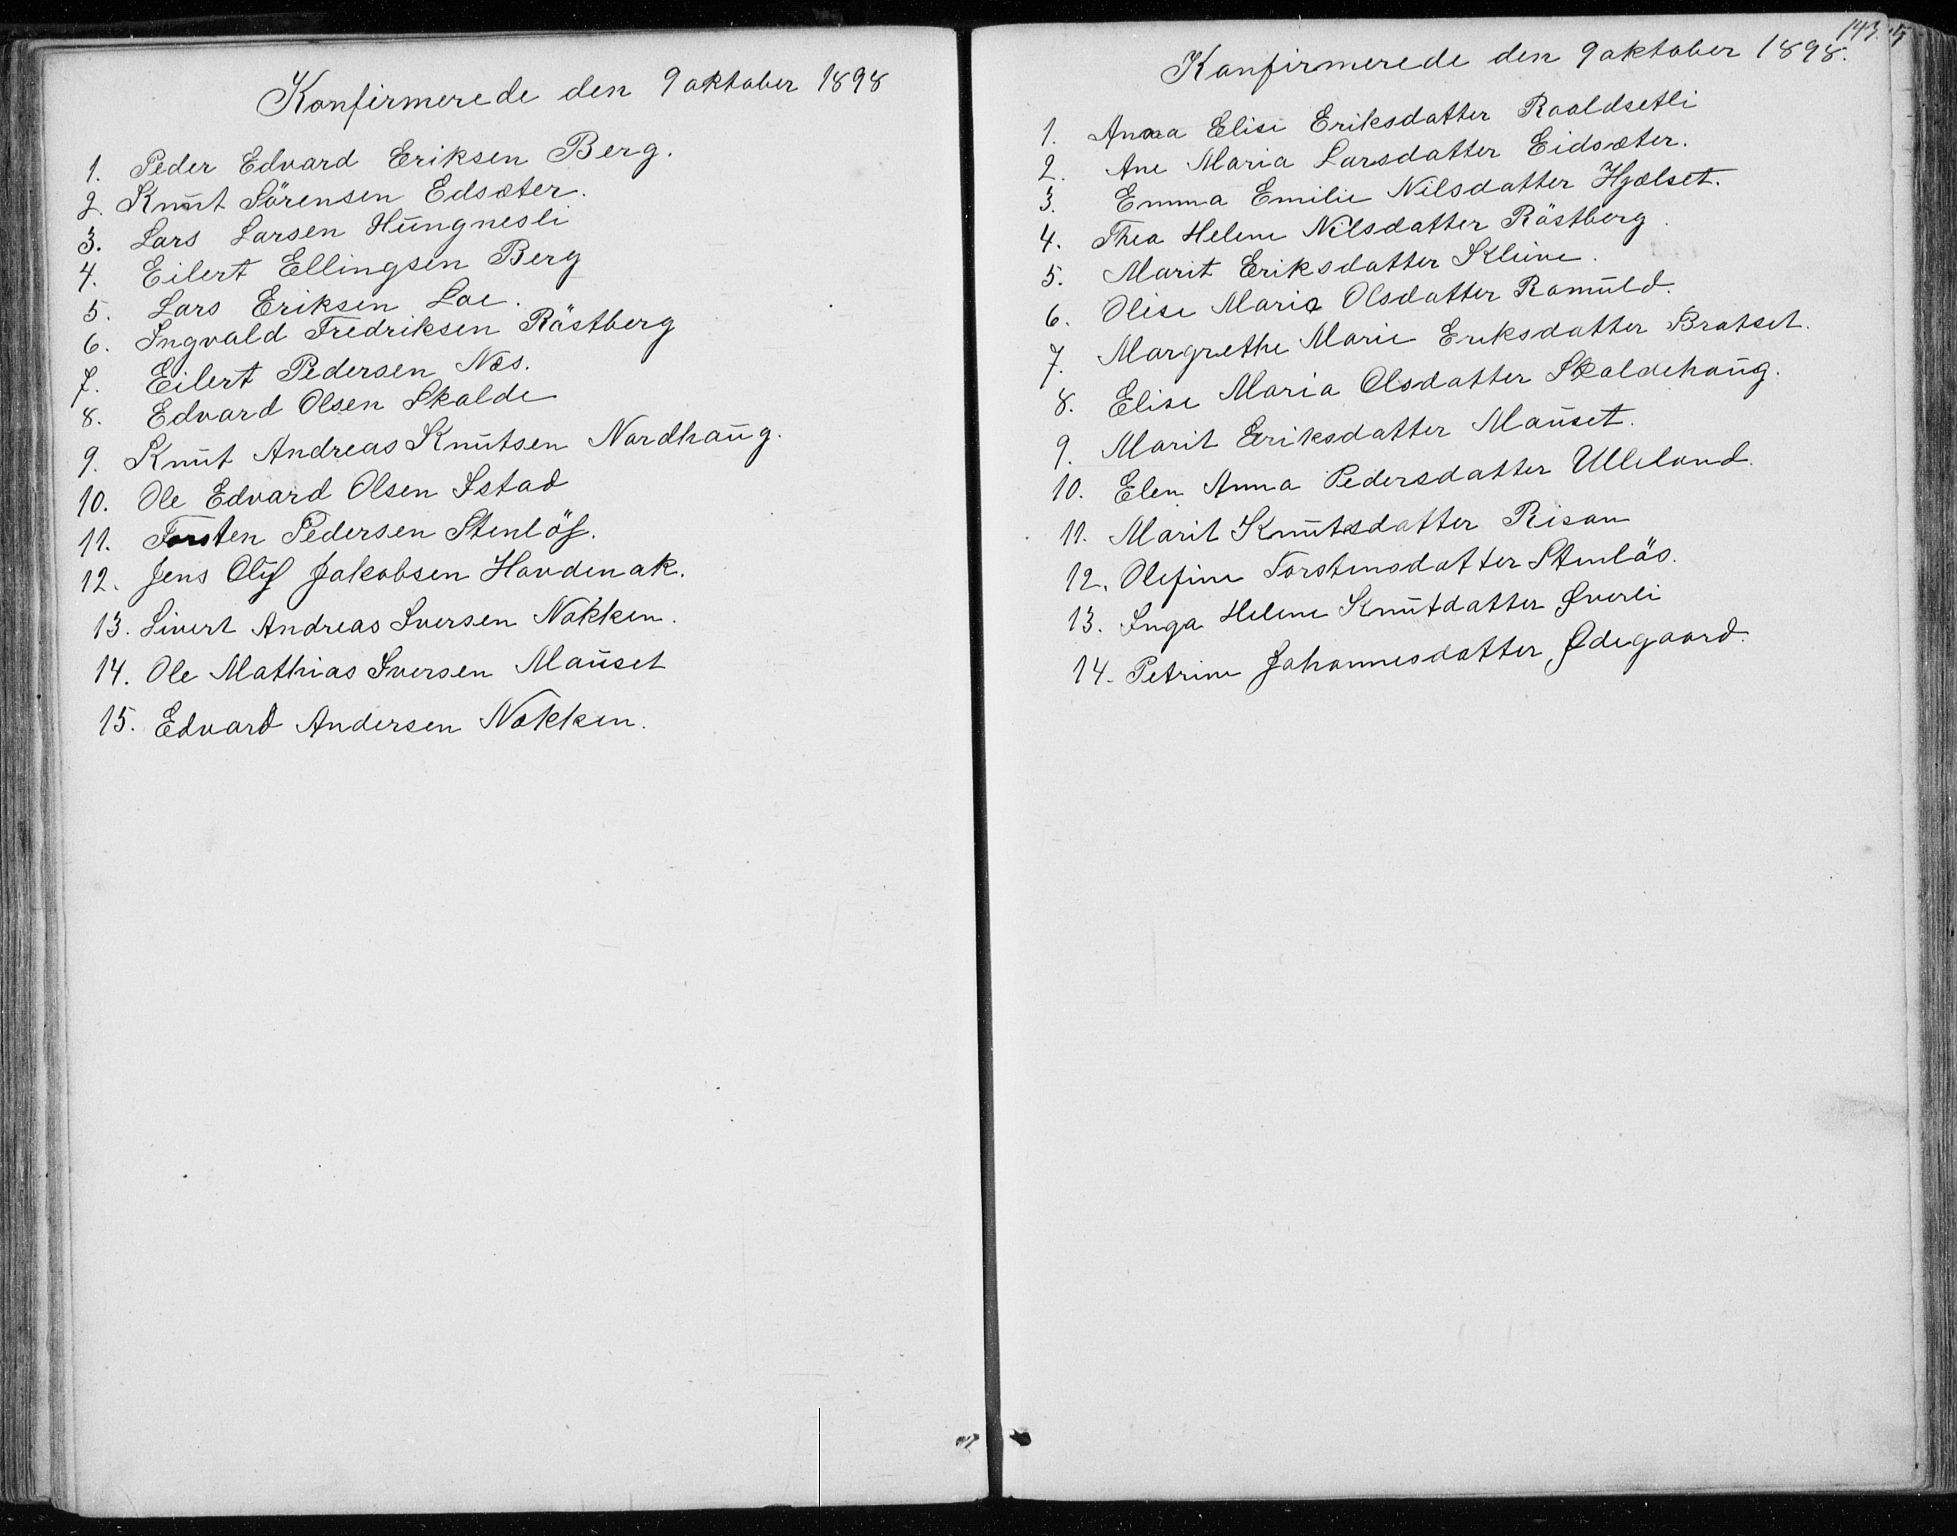 Konfirmerede den 9 oktober 1898
1. Peder Edvard Eriksen Berg.
2. Knut Sörensen Edsæter.
3. Lars Larsen Hungnesli
4. Eilert Ellingsen Berg
5. Lars Eriksen Loe.
6. Ingvald Fredriksen Röstberg
7. Eilert Pedersen Næs.
8. Edvard Olsen Skalde
9. Knut Andreas Knutsen Nordhaug.
10. Ole Edvard Olsen Istad
11. Torsten Pedersen Stenlös.
12. Jens Oluf Jakobsen Hovdenak.
13. Sivert Andreas Iversen Nakken.
14. Ole Mathias Iversen Mauset
15. Edvard Andersen Nakken.
143.
Konfirmerede den 9 oktober 1898.
1. Anna Elise Eriksdatter Roaldsetli
2. Ane Maria Larsdatter Eidsæter.
3. Emma Emilie Nilsdatter Hjælset.
4. Thea Helene Nilsdatter Röstberg.
5. Marit Eriksdatter Kleive.
6. Olise Maria Olsdatter Romuld.
7. Margrethe Marie Eriksdatter Bratset.
8. Elise Maria Olsdatter Skaldehaug.
9. Marit Eriksdatter Mauset.
10. Elen Anna Pedersdatter Ulleland.
11. Marit Knutsdatter Risan
12. Olefine Torstensdatter Stenlös.
13. Inga Helene Knutdatter Øverli
14. Petrine Johannesdatter Ødegaard.